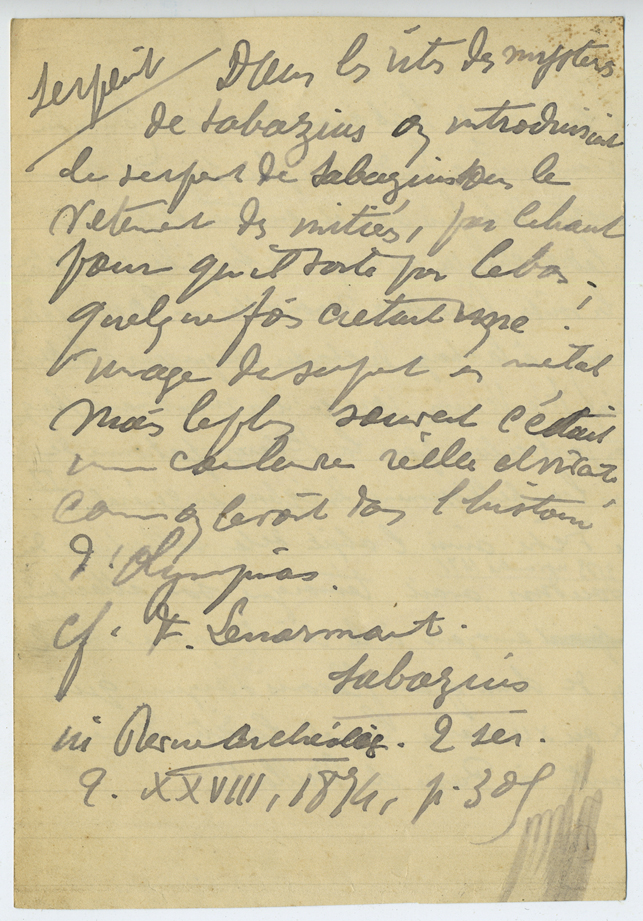 Serpent
Dans les rites des mystères
de Sabazius on introduisait
le serpent de Sabazius dans le
vetement des initiés, par le haut
pour qu'il sorte par le bas ;
quelque fois c'etait une
image du serpent en métal
mais le plus souvent c'était
une couleuvre réelle et vivante
comme on le voit dans l'histoire
d'Olympias.
cf. F. Lenormant.
Sabazius
in Revue Archéolog. 2 sér.
t. XXVIII, 1874, p. 305